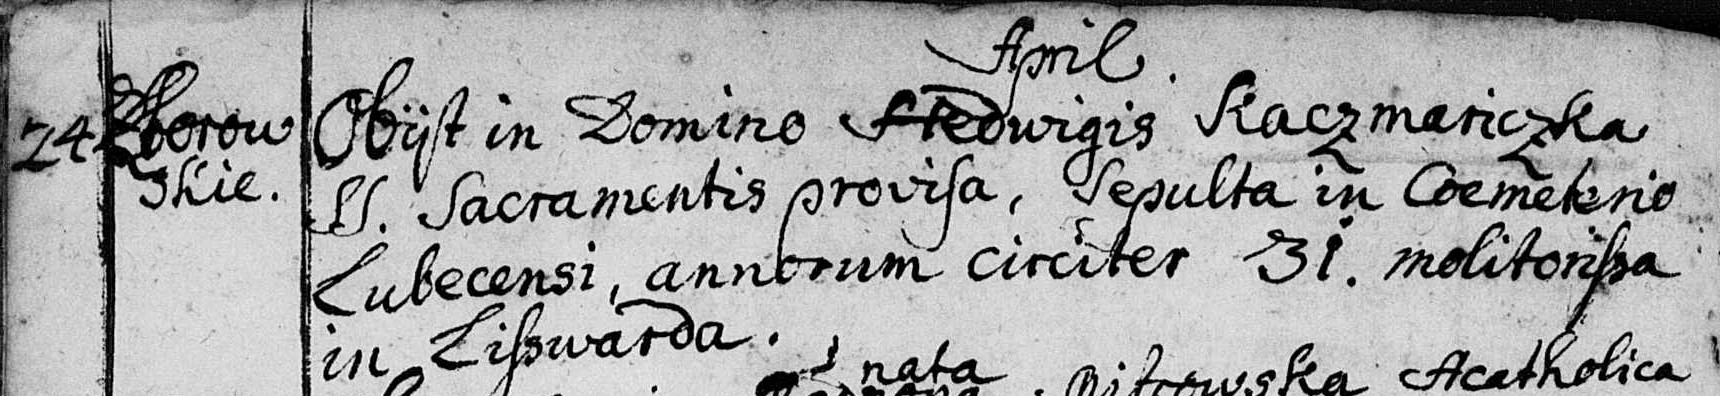 April.
24 Zborow Obijt in Domino Hedwigis Kaczmariczka
skie. SS. Sacramentis provisa, Sepulta in Coemeterio
Lubecensi, annorum circiter 31. molitorissa
in Lisswarda.
nata
Acatholica